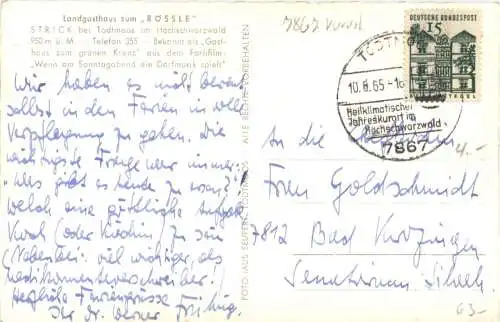 Landgasthaus zum „RÖSSLE"
STRICK bei Todtmoos im Hochschwarzwald
950 m ü. M. Telefon 355 – Bekannt als „Gast-
haus zum grünen Kranz" aus dem Farbfilm:
„Wenn am Sonntagabend die Dorfmusik spielt"
7867
DEUTSCHE BUNDESPOST
15
TODTMOOS
10.8.65-16
Heilklimatischer
Jahreskurort im
Hochschwarzwald
7867
Wir haben es nicht bereut,
selbst in den Ferien in volle
Verpflegung zu gehen. Die
wichtigste Frage war immer:
"Was gibt es heute zu essen?"
welch eine göttliche Aufgabe
Koch (oder Köchin) zu sein
(Nebenbei: viel wichtiger, als
Medikamentenverschreiber!)
Herzliche Feriengrüsse
Ihr Dr. Werner
An die
Frau Goldschmidt
7812 Bad Krozingen
Sanatorium
4.-
G3-
FOTOHAUS SEUFERT, TODTMOOS
ALLE RECHTE VORBEHALTEN